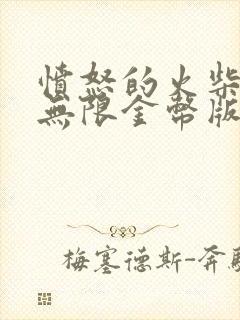 憤怒的火柴
無限金幣版
梅塞德斯-奔馳